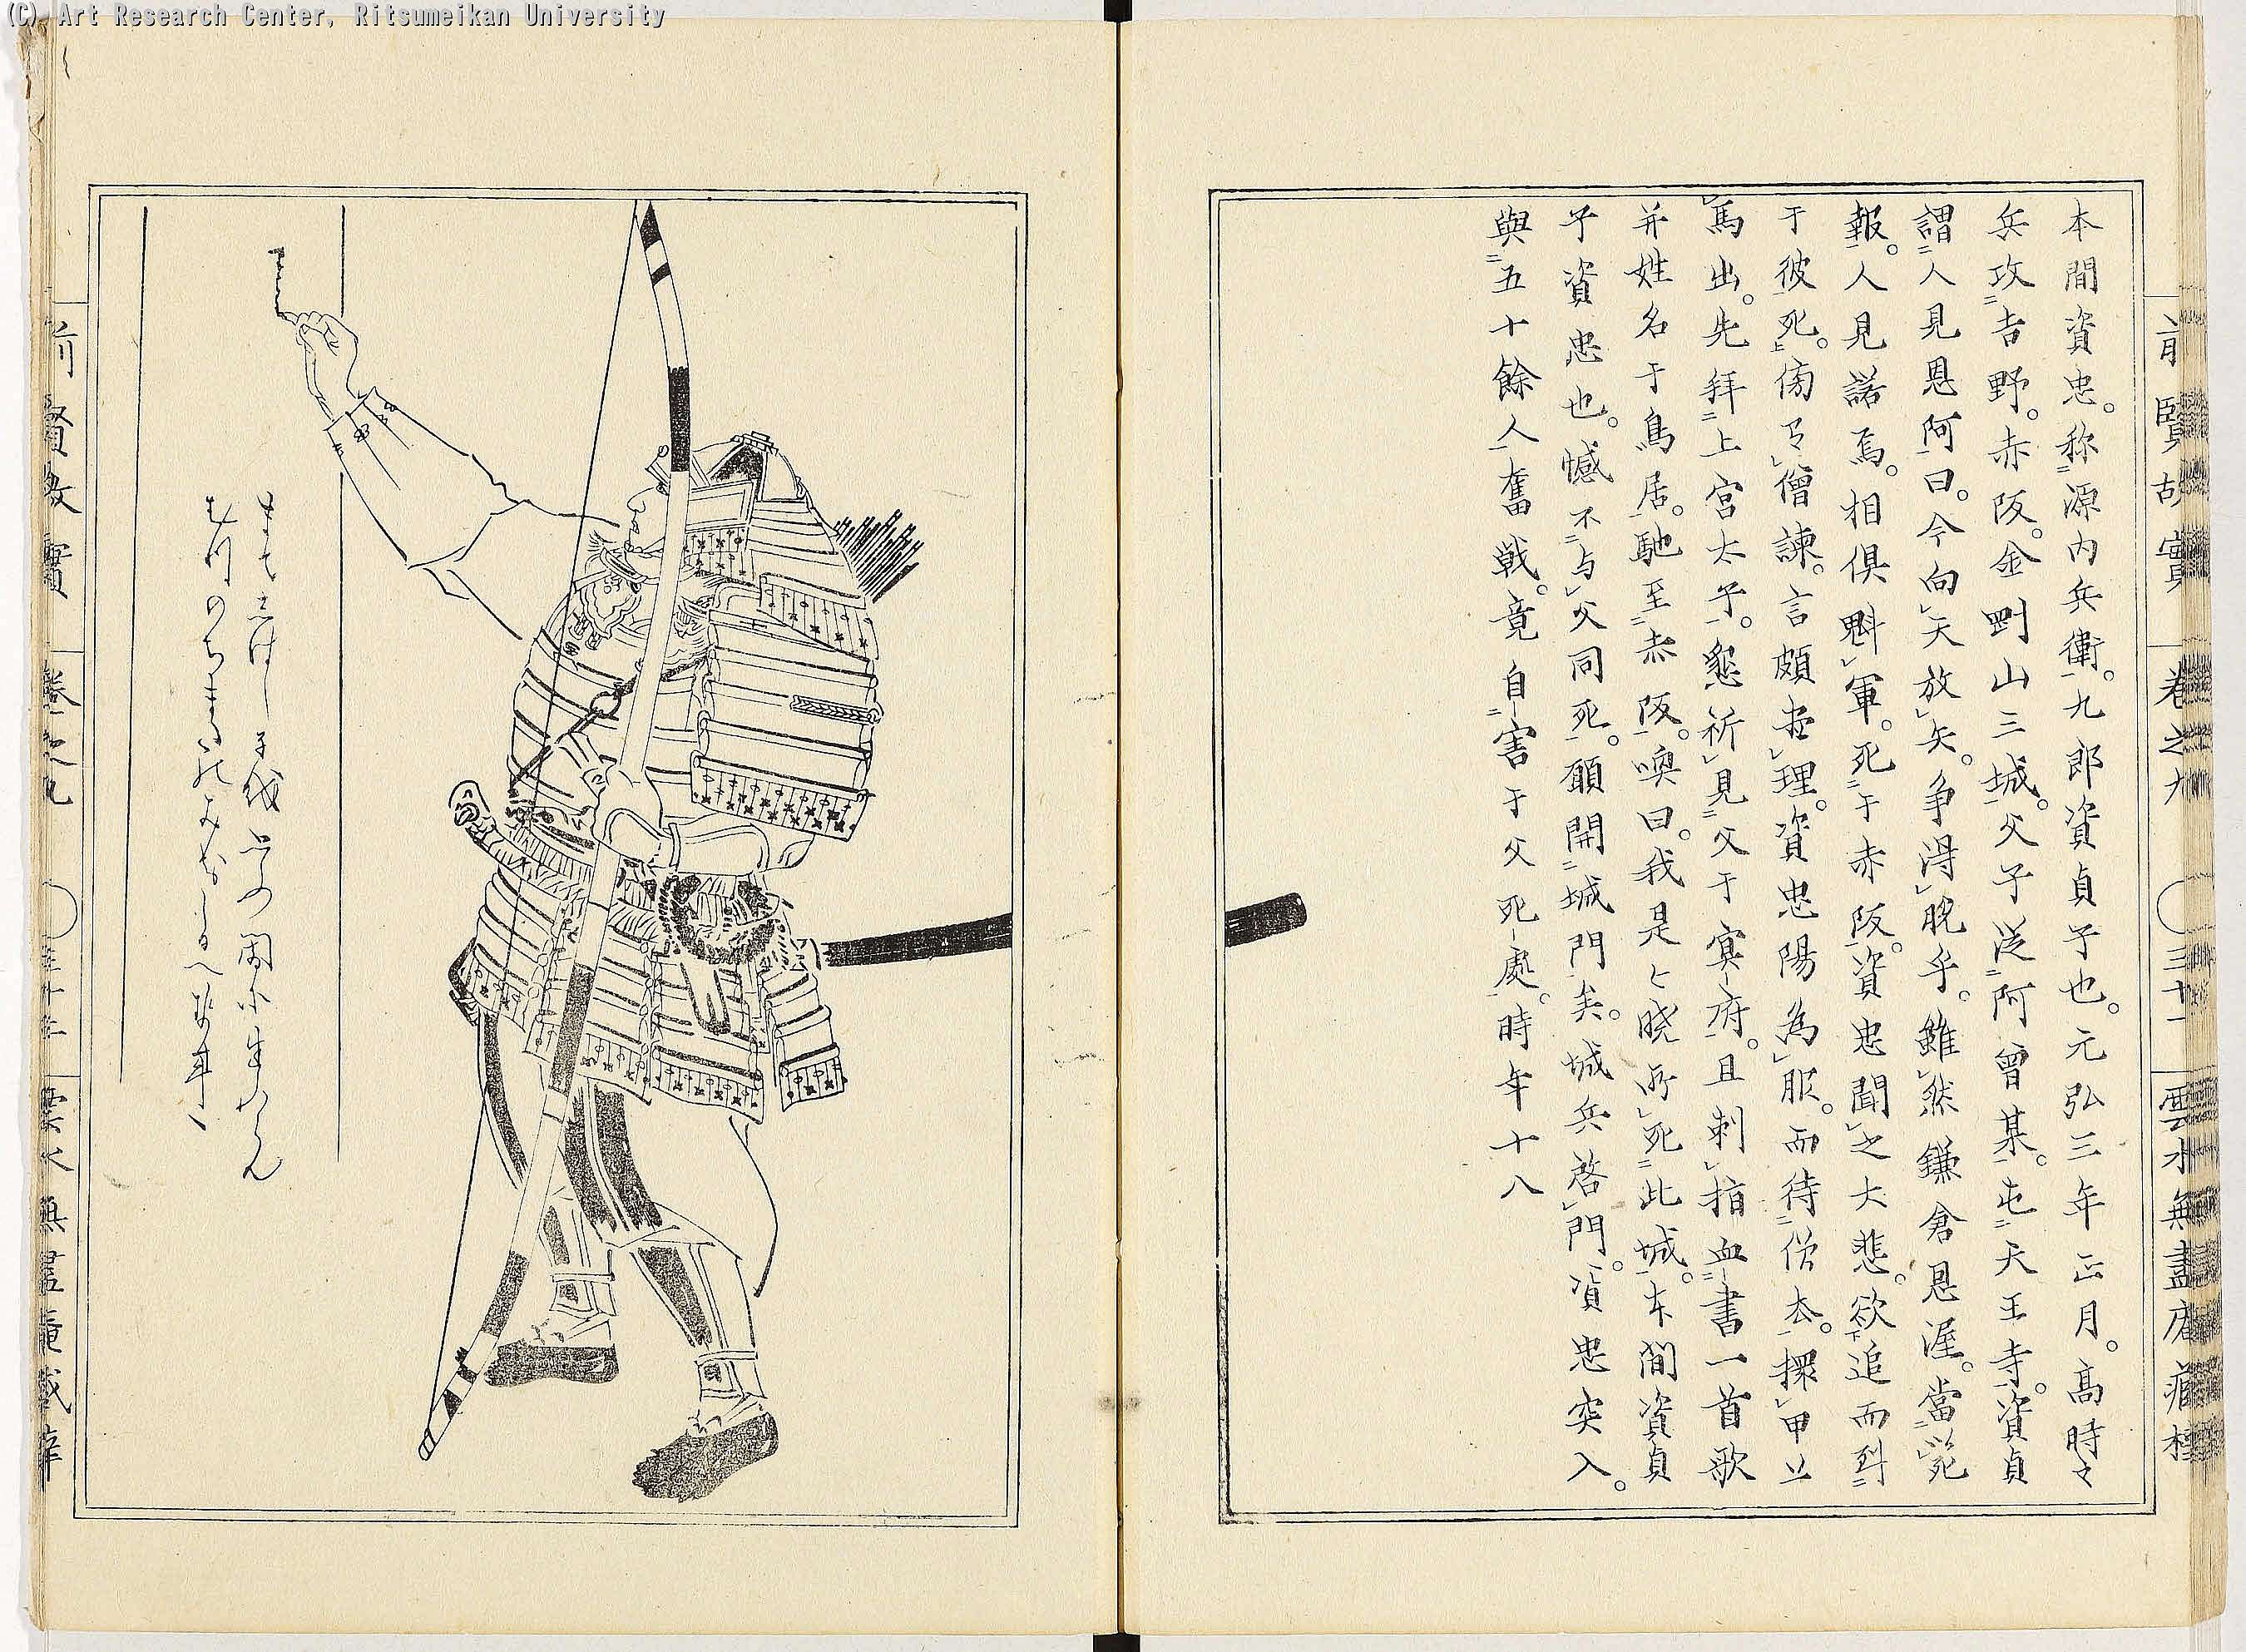 (C) Art Research Center, Ritsumeikan University
前賢故實 卷之九 三十一 雲水無盡庵藏梓
本間資忠。称源内兵衛。九郎資貞子也。元弘三年正月。高時々
兵攻吉野。赤阪。金剛山三城。父子従阿曾某。屯天王寺。資貞
謂人見恩阿曰。今向天放矢。争得脱乎。雖然鎌倉恩渥。當死
報。人見諾焉。相倶魁軍。死于赤阪。資忠聞之大悲。欲追而
于彼死。傍有僧諫。言頗盡理。資忠陽為服。而待僧去。擐甲上
馬出。先拜上宮太子。懇祈見父于冥府。且刺指血書一首歌
并姓名于鳥居。馳至赤阪。喚曰。我是今暁所死此城。本間資貞
子資忠也。憾不与父同死。願開城門矣。城兵啓門。資忠突入。
與五十餘人奮戦。竟自害于父死處。時年十八
まてしはし子を思ふ闇に
むつのちまたの
前賢故實 卷之九 雲水無盡菴藏梓